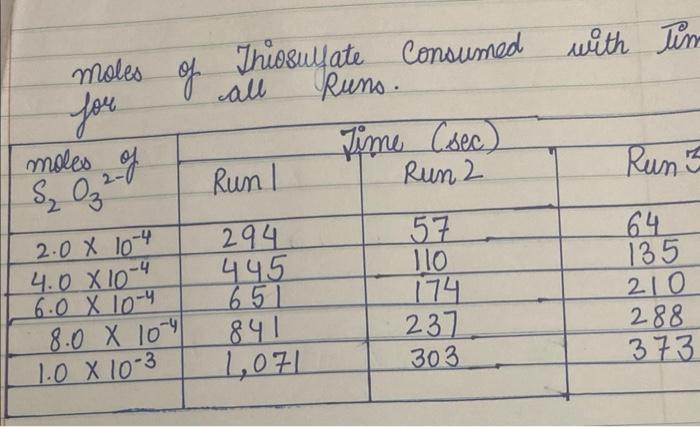 moles of Thiosulfate Consumed with Tim
for all Runs.
Time (sec)
moles of S₂O₃²⁻ Run 1 Run 2 Run 3
2.0 X 10⁻⁴ 294 57 64
4.0 X 10⁻⁴ 445 110 135
6.0 X 10⁻⁴ 651 174 210
8.0 X 10⁻⁴ 841 237 288
1.0 X 10⁻³ 1,071 303 373